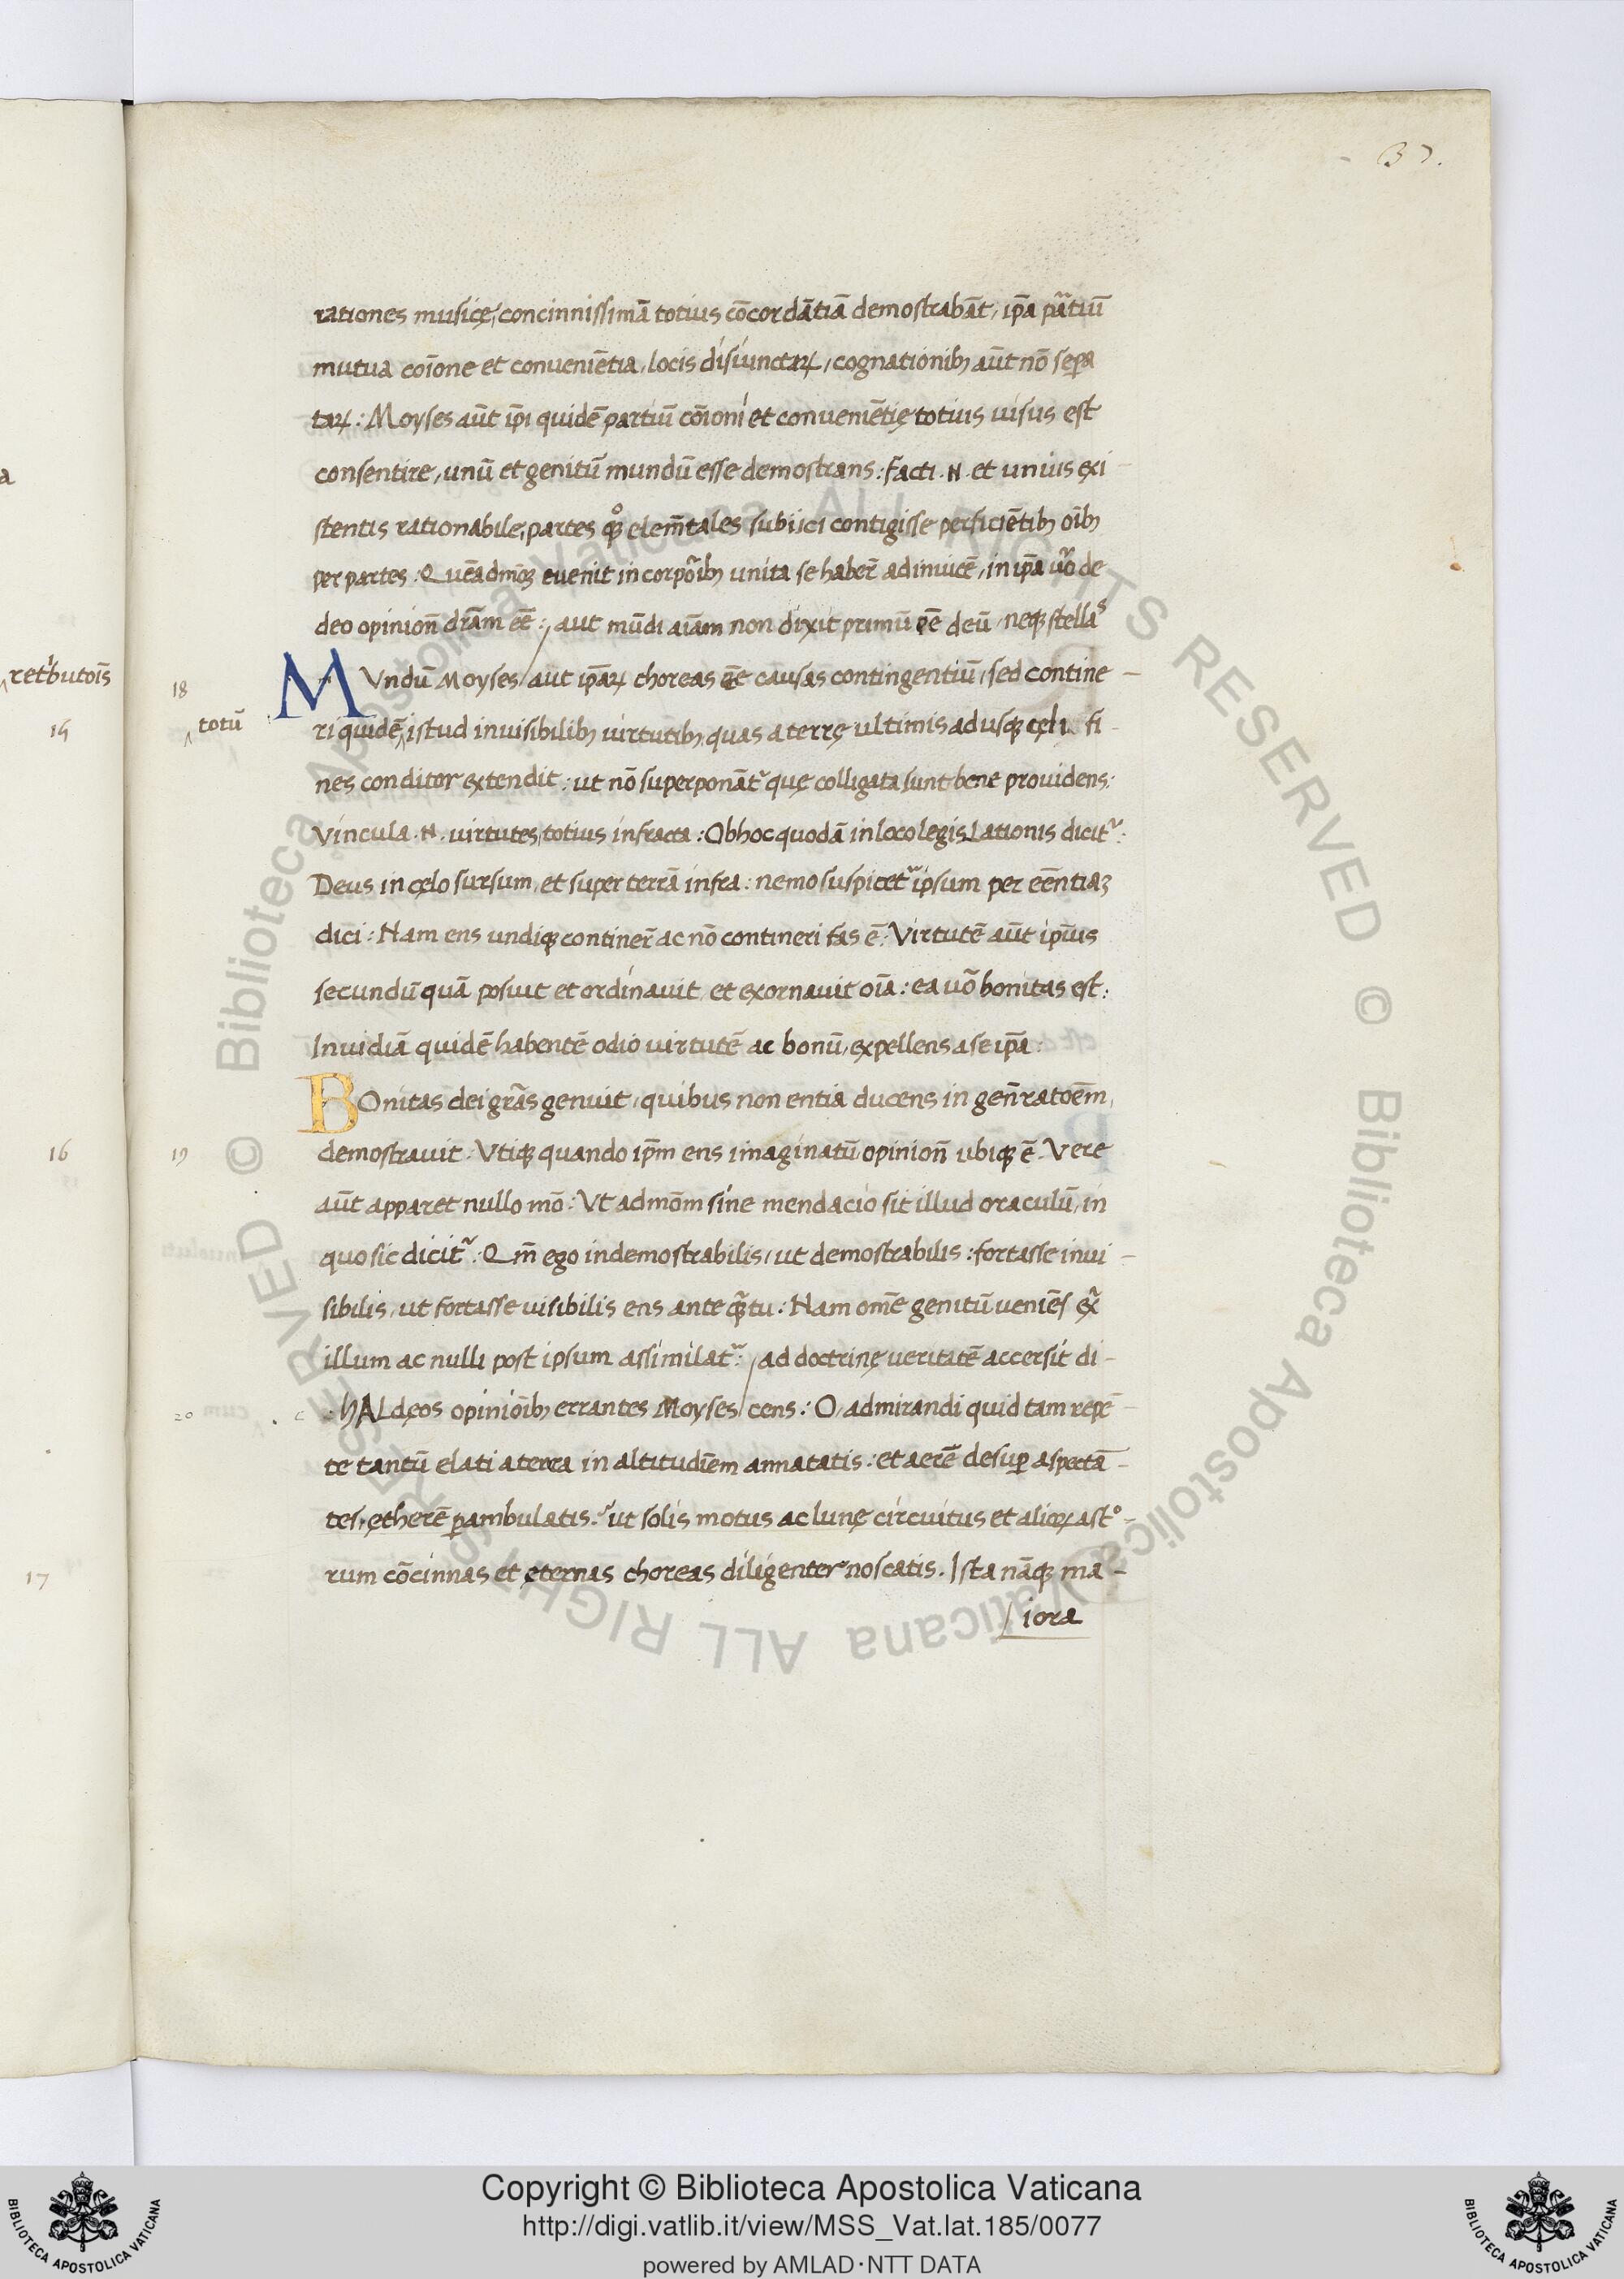 37.
rationes musicę, concinnissimā totius cōcordātiā demostrabāt, ip̄a pātiū
mutua cōīone et conueniētia, locis disiunctaꝝ, cognationibꝫ aūt nō sepa
taꝝ: Moyses aūt ip̄i quidē partiū cōīoni et conueniētię totius uisus est
consentire, unū et genitū mundū esse demostrans: Facti .N. et unius exi-
stentis rationabile, partes elem̄tales subiici contigisse perficiētibꝫ oībꝫ
per partes: Quēadmōꝫ euenit in corpōribꝫ unita se haber̄ adinuicē, in ip̄a uͦo de
deo opinion̄ dr̄am eē: / aut mūdi aīam non dixit primū eē deū, neqꝫ stellas
18
MVndū Moyses / aut ip̄aꝝ choreas eē causas contingentiū, sed contine-
^ totū
ri quidē ^ istud inuisibilibꝫ uirtutibꝫ quas a terrę ultimis ad usqꝫ cęli fi-
nes conditor extendit: ut nō superponāt᷑ quę colligata sunt bene prouidens:
Vincula .N. uirtutes totius infracta: Ob hoc quodā in loco legis Lationis dicit᷑:
Deus in cęlo sursum, et super terrā infra: nemo suspicet᷑ ipsum per eēntiaꝫ
dici: Nam ens undiqꝫ continer̄ ac nō contineri fas ē: Virtutē aūt ip̄ius
secundū quā posuit et ordinauit, et exornauit oīa: ea uō bonitas est:
Inuidiā quidē habentē odio uirtutē ac bonū, expellens a se ip̄a:
BOnitas dei gr̄as genuit, quibus non entia ducens in gen̄ratōem,
19
demostrauit: Vtiqꝫ quando ip̄m ens imaginatū opinion̄ ubiqꝫ ē. Vere
aūt apparet nullo mō: Vt admōm sine mendacio sit illud oraculū, in
quo sic dicit᷑: Qm̄ ego indemostrabilis, ut demostrabilis: fortasse inui-
sibilis, ut fortasse uisibilis ens ante tu: Nam om̄e genitū ueniēs
illum ac nulli post ipsum assimilat᷑: / ad doctrinę ueritatē accersit di-
20
c hALdęos opiniōibꝫ errantes Moyses / cens: O, admirandi quid tam repē-
te tantū elati a terra in altitudīem annatatis: et aerē desuꝑ aspectā-
tes, ętherē ꝑambulatis: ut solis motus ac lunę circuitus et alioꝝ astͦ-
rum cōcinnas et ęternas choreas diligenter noscatis. Ista nāqꝫ ma-
iora
a
^ retibutōīs
15
16
17
Copyright © Biblioteca Apostolica Vaticana
http://digi.vatlib.it/view/MSS_Vat.lat.185/0077
powered by AMLAD·NTT DATA
BIBLIOTECA APOSTOLICA VATICANA
BIBLIOTECA APOSTOLICA VATICANA
© Biblioteca Apostolica Vaticana ALL RIGHTS RESERVED © Biblioteca Apostolica Vaticana ALL RIGHTS RESERVED